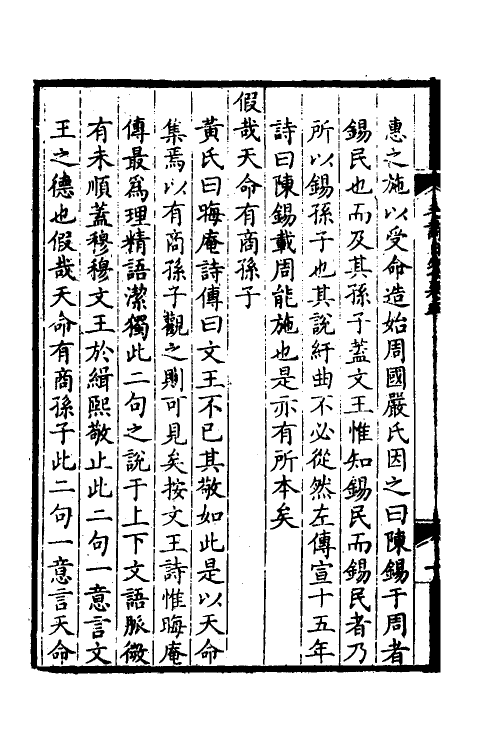 惠之施以受命造始周國嚴氏因之曰陳錫于周者
錫民也而及其孫子蓋文王惟知錫民而錫民者乃
所以錫孫子也其說紆曲不必從然左傳宣十五年
詩曰陳錫載周能施也是亦有所本矣
假哉天命有商孫子
黃氏曰晦庵詩傳曰文王不已其敬如此是以天命
集焉以有商孫子觀之則可見矣按文王詩惟晦庵
傳最為理精語潔獨此二句之說于上下文語脈微
有未順蓋穆穆文王於緝熙敬止此二句一意言文
王之德也假哉天命有商孫子此二句一意言天命